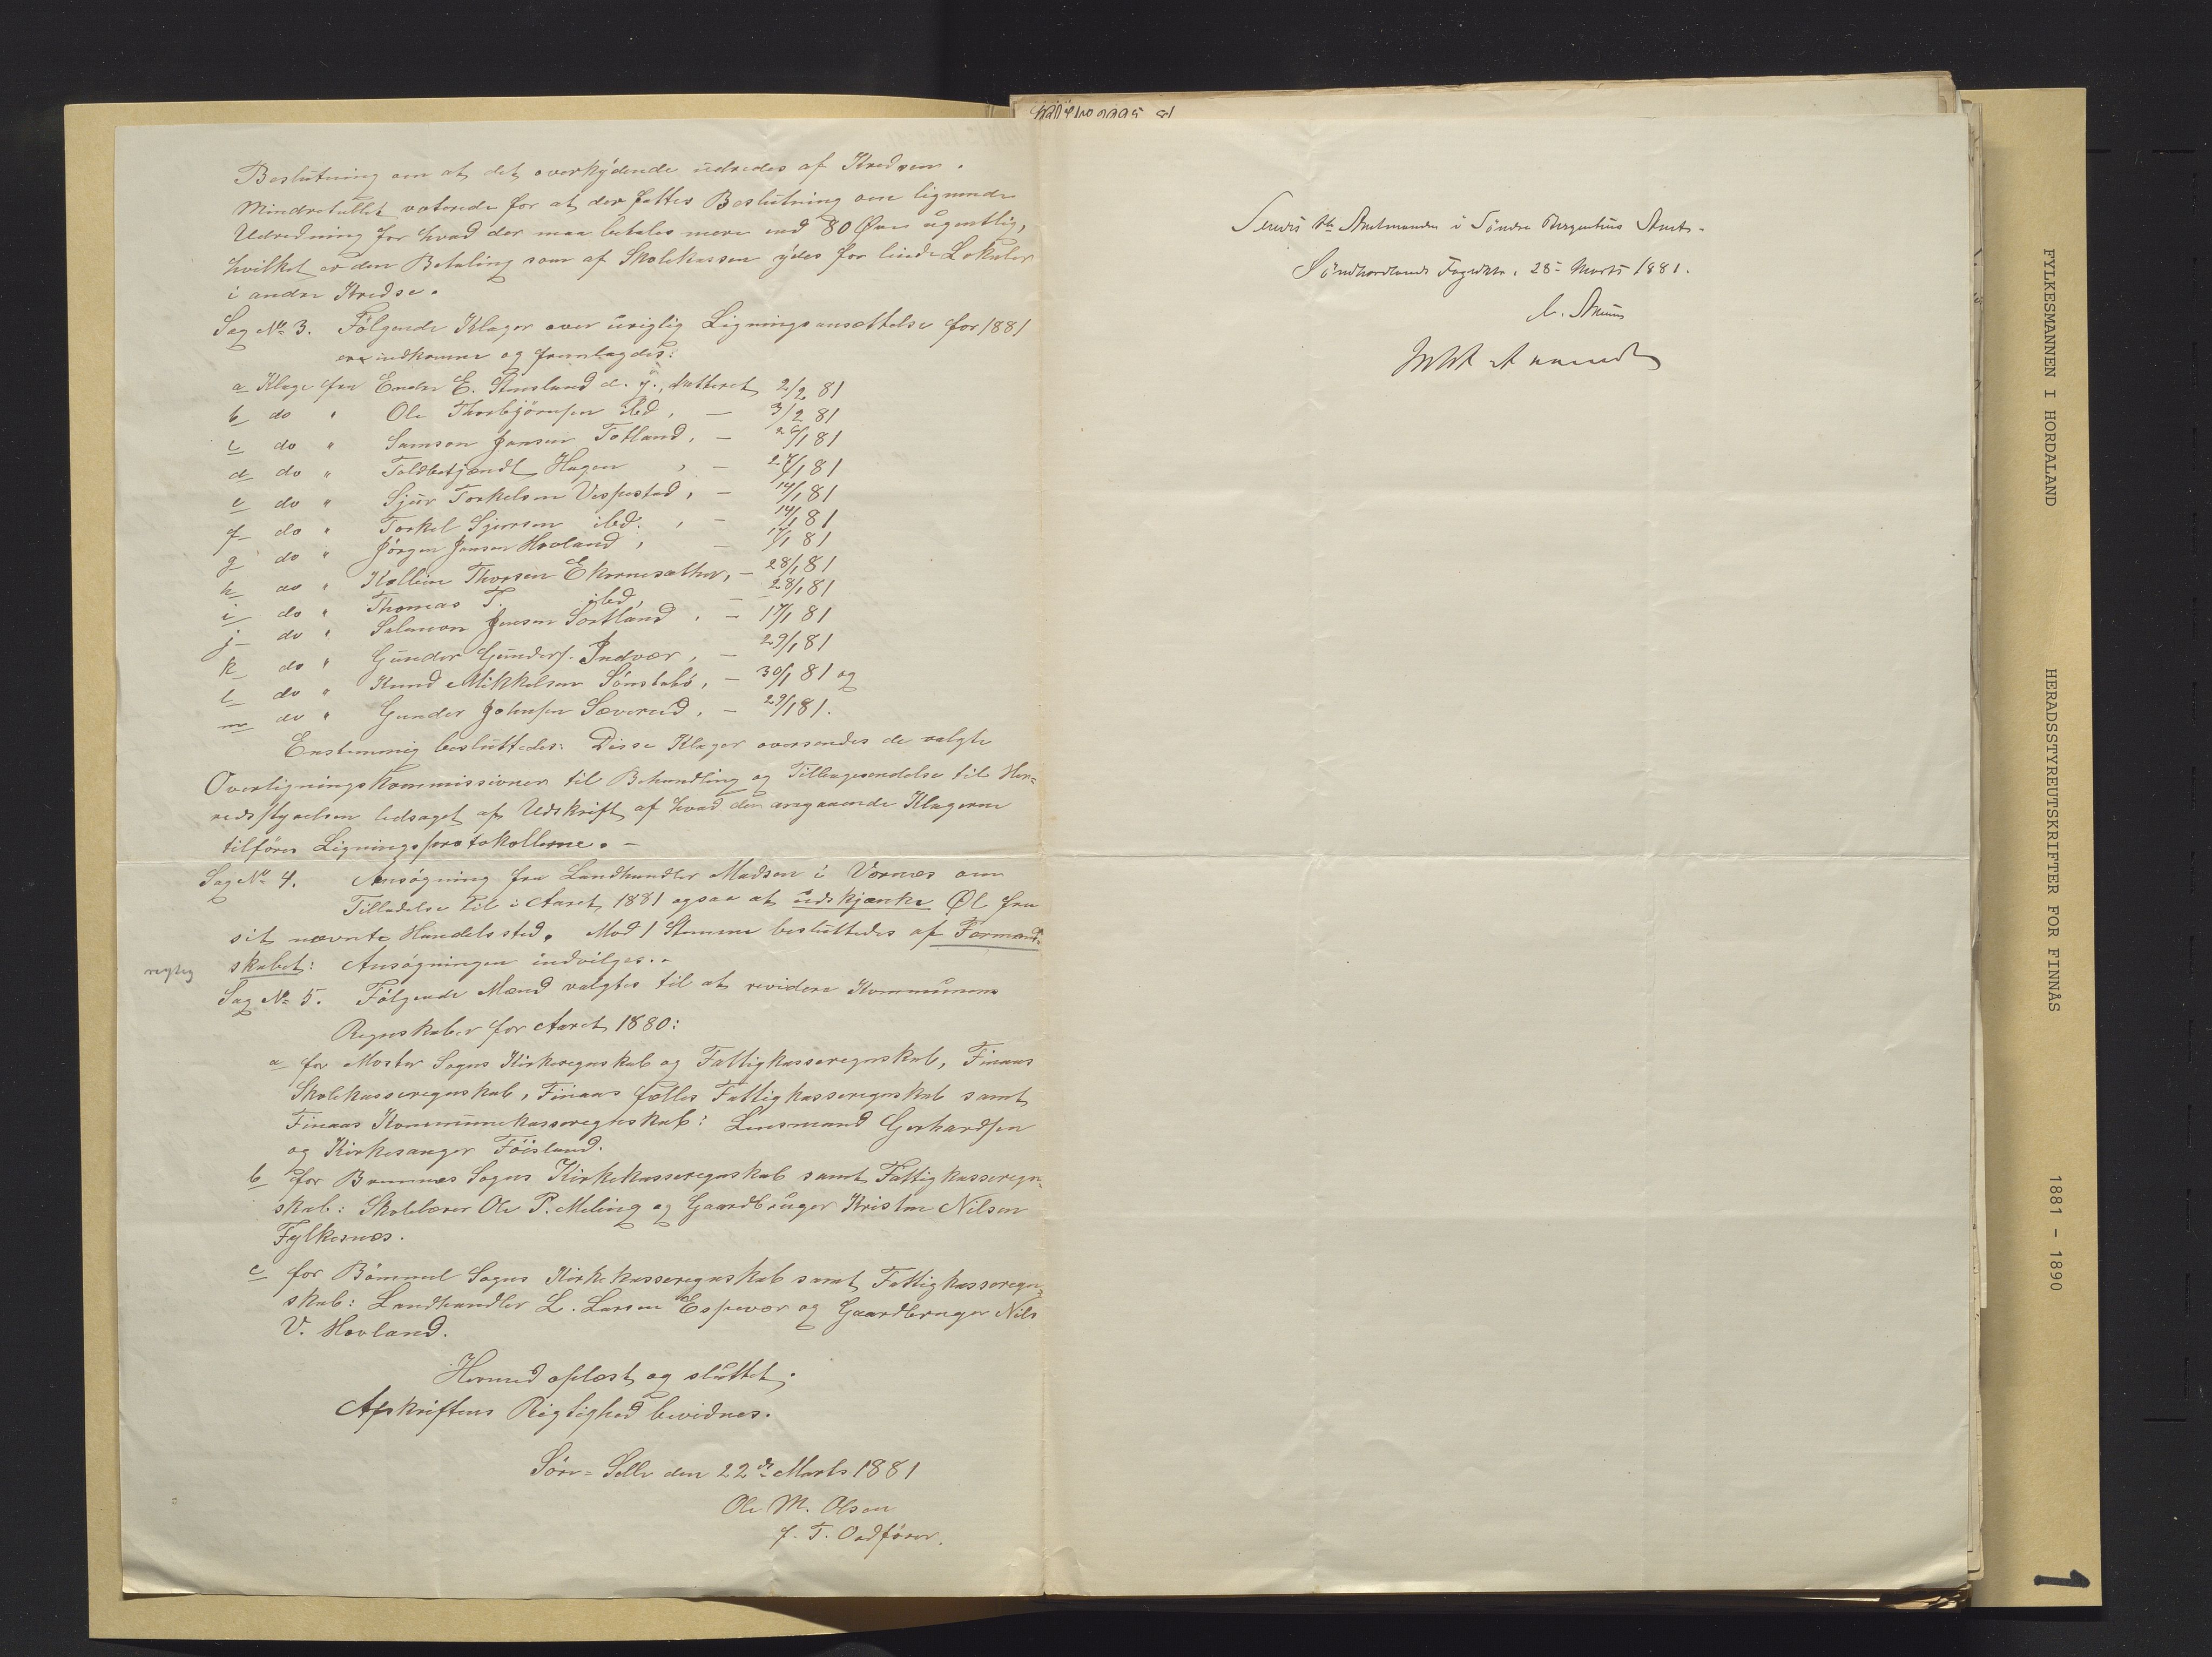 Beslutning om at det overskydende udredes af Kredsen.
Mindretallet voterede for at der fattes Beslutning om lignende
Udredning for hvad der maa betales mere end 80 Øre ugentlig,
hvilket er den Betaling som af Skolekassen ydes for leiede Lokaler
i andre Kredse.
Sag No 3. Følgende Klager over urigtig Ligningsansættelse for 1881
ere indkomne og fremlagdes:
a Klage fra Endre E. Stensland d. y., datteret 2/2 81
b do " Ole Thorbjørnsen ibd, — 3/2 81
c do " Samson Jansen Totland, — 26/1 81
d do " Toldbetjendt Hagen, — 27/1 81
e do " Sjur Torkelsen Vespestad, — 14/1 81
f do " Torkel Sjursen ibd., — 14/1 81
g do " Jörgen Jensen Hovland, — 17/1 81
h do " Thorsen Ekornsæther, — 28/1 81
i do " Thomas T. ibd, — 28/1 81
j do " Salamon Jensen Sortland, — 17/1 81
k do " Gunder Gunders. Indvær, — 29/1 81
l do " Knud Mikkelsen Sönstabö, — 30/1 81 og
m do " Gunder Johnsen Sæverud, — 29/1 81.
Enstemmig besluttedes: Disse Klager oversendes de valgte
Overligningskommissioner til Behandling og Tilbagesendelse til Her=
redsstyrelsen ledsaget af Udskrift af hvad den angaaende Klagerne
tilföres Ligningsprotokollerne. —
Sag No 4. Ansögning fra Landhandler Madsen i Vornæs om
Tilladelse til i Aaret 1881 ogsaa at udskjænke Øl fra
sit nævnte Handelssted. Mod 1 Stemme besluttedes af Formand=
skabet: Ansögningen indvilges.-
rigtig
Sag No 5. Følgende Mænd valgtes til at revidere Kommunens
Regnskaber for Aaret 1880:
a for Moster Sogns Kirkeregnskab og Fattigkasseregnskab, Finaas
Skolekasseregnskab, Finaas fælles Fattigkasseregnskab samt
Finaas Kommunekasseregnskab: Lensmand Gerhardsen
og Kirkesanger Föisland.
b for Bremnes Sogns Kirkekasseregnskab samt Fattigkasseregn=
skab: Skolelærer Ole P. Meling og Gaardbruger Kristen Nilsen
Fylkesnæs.
c for Bömmel Sogns Kirkekasseregnskab samt Fattigkasseregn=
skab: Landhandler L. Larsen Espevær og Gaardbruger Nils
V. Hovland.
Hermed oplæst og sluttet.
Afskriftens Rigtighed bevidnes.
Söre=Selle den 22de Marts 1881
Ole M. Olsen
f. T. Ordförer.
Amtmanden i Söndre Bergenhus Amt.
Söndhordlands Fogderi, 28 Marts 1881.
FYLKESMANNEN I HORDALAND HERADSSTYREUTSKRIFTER FOR FINNÅS 1881 - 1890
1